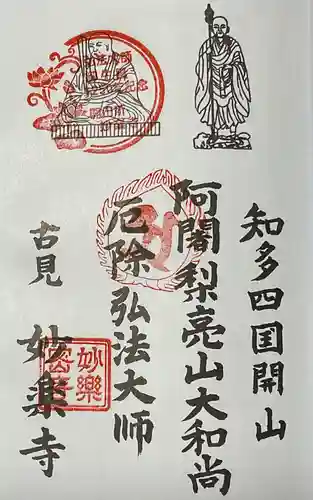 知多四国開山
阿闍梨亮山大和尚
厄除弘法大师
古見
妙楽寺
妙樂